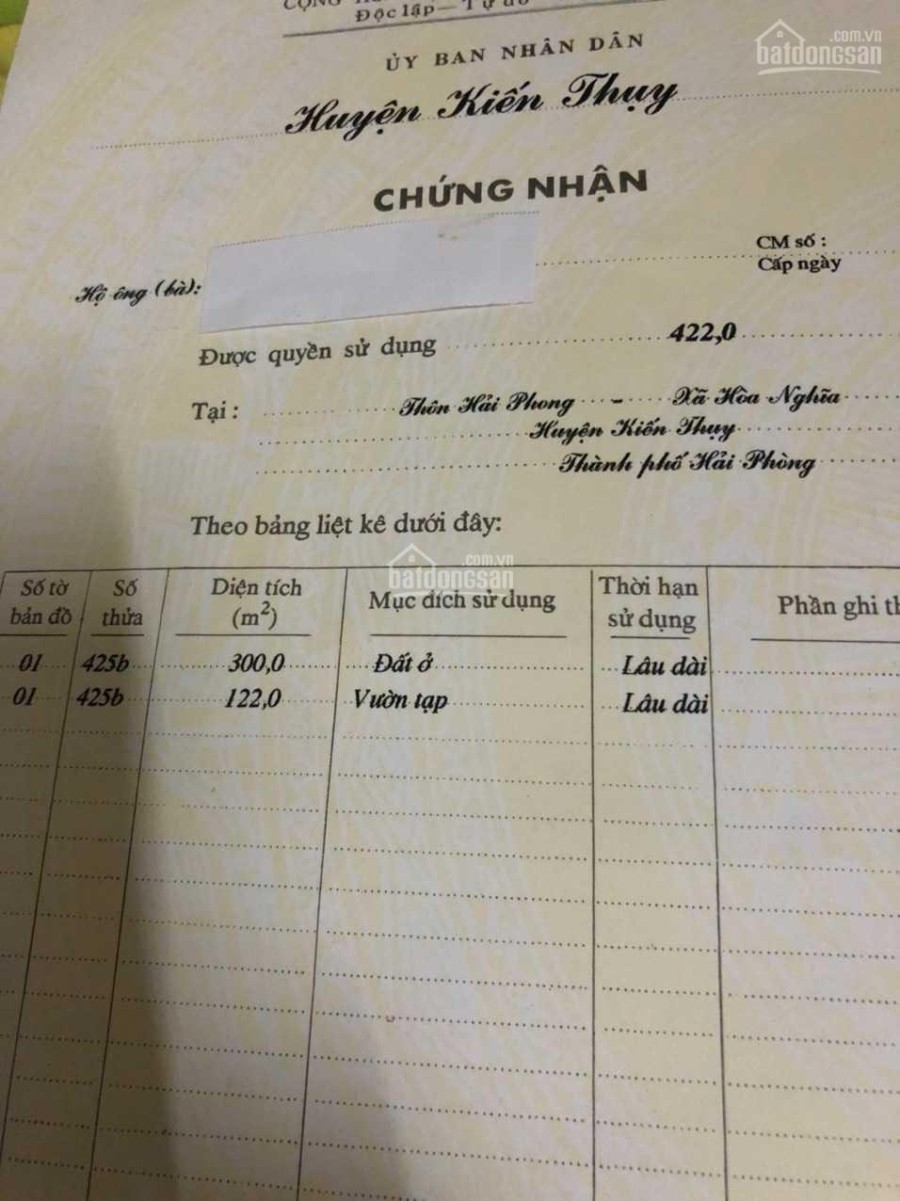 Độc lập — Tự do
ỦY BAN NHÂN DÂN
.com.vn
batdongsan
Huyện Kiến Thụy
CHỨNG NHẬN
CM số :
Cấp ngày
Hộ ông (bà):
Được quyền sử dụng 422,0
Tại : Thôn Hải Phong - Xã Hòa Nghĩa
Huyện Kiến Thụy
Thành phố Hải Phòng
Theo bảng liệt kê dưới đây:
.com.vn
batdongsan
Số tờ bản đồ Số thửa Diện tích (m²) Mục đích sử dụng Thời hạn sử dụng Phần ghi
01 425b 300,0 Đất ở Lâu dài
01 425b 122,0 Vườn tạp Lâu dài